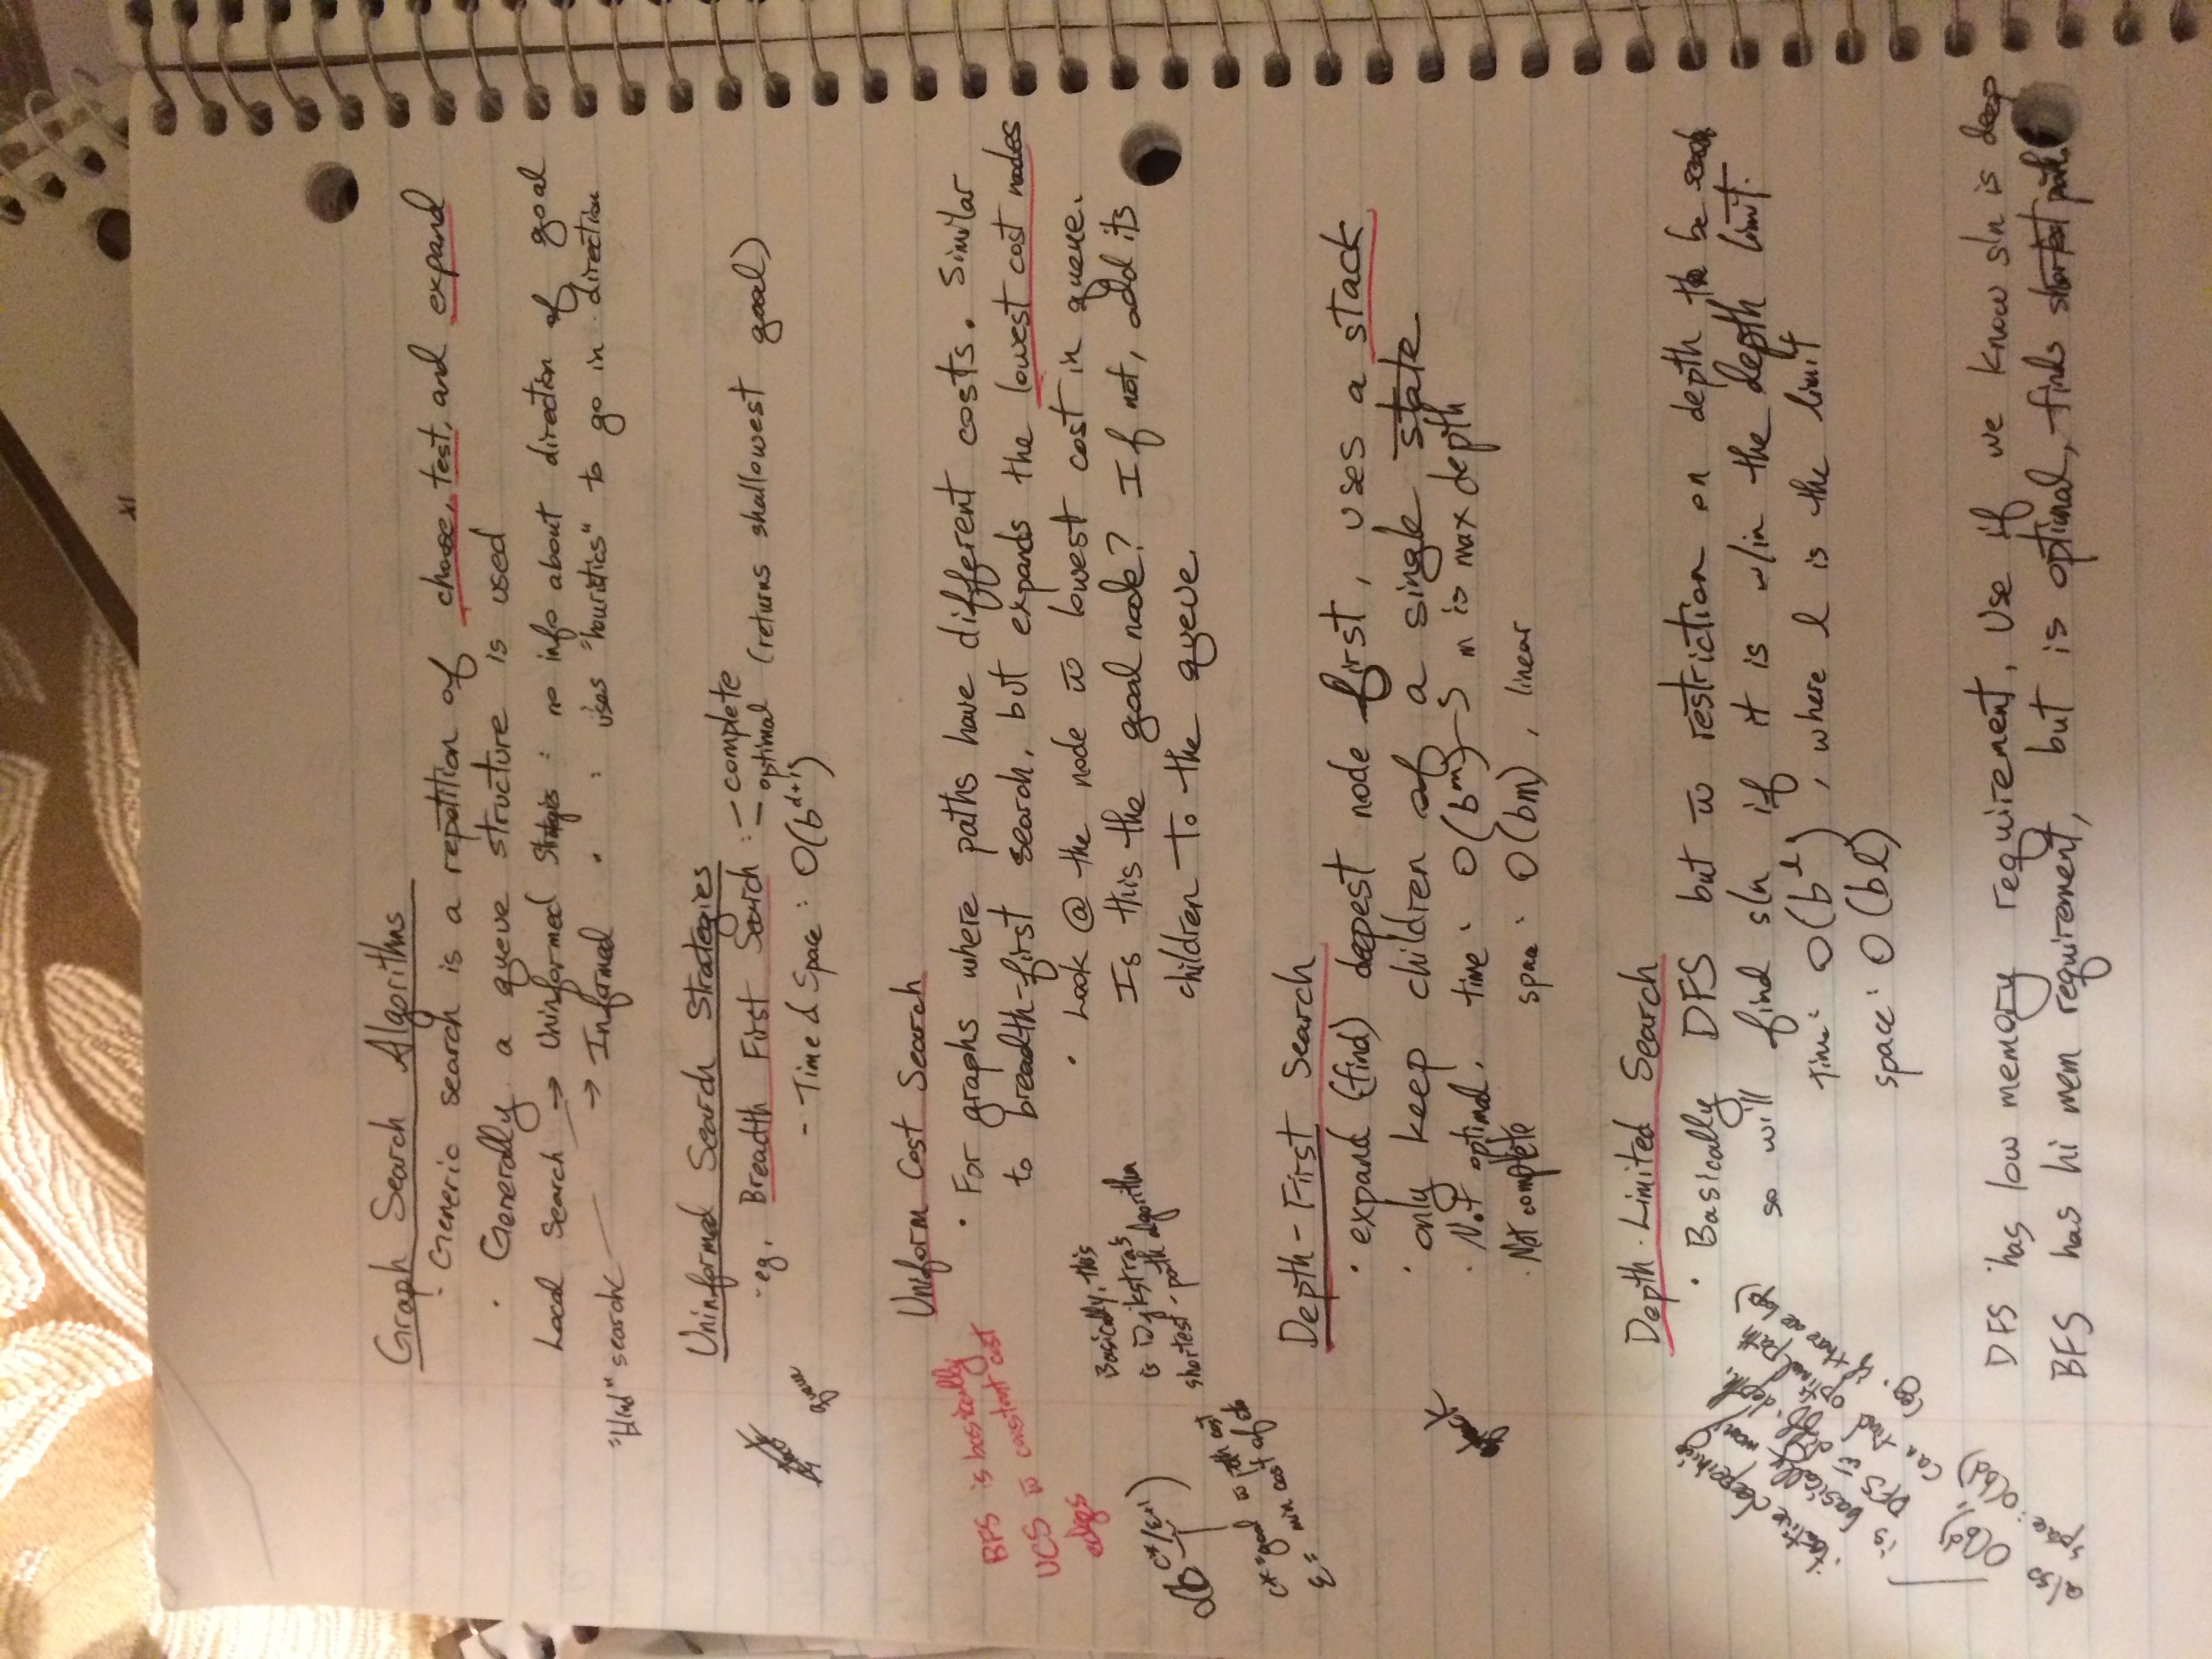 Graph Search Algorithms
· Generic search is a repetition of choose, test, and expand
· Generally a queue structure is used
Local Search → Uninformed Strategies : no info about direction of goal
→ Informed " : uses "heuristics" to go in direction
"blind" search
Uninformed Search Strategies
· eg. Breadth First Search : - complete
- optimal (returns shallowest goal)
- Time & Space : O(b^d+1)
queue
Uniform Cost Search
· For graphs where paths have different costs. Similar
to breadth-first search, but expands the lowest cost nodes
· Look @ the node w̄ lowest cost in queue.
Is this the goal node? If not, add its
children to the queue.
BFS is basically
UCS w̄ constant cost
edges
Basically, this
is Dijkstra's
shortest-path algorithm
O(b^C*/ε+1)
C* = goal w̄ path cost
ε = min cost of
Depth-First Search
· expand (find) deepest node first, uses a stack
· only keep children of a single state
· Not optimal. time : O(b^m) → m is max depth
· Not complete space : O(bm) , linear
stack
Depth-Limited Search
· Basically DFS but w̄ restriction on depth to be
so will find sln if it is w/in the depth limit.
time: O(b^l) , where l is the limit
space: O(bl)
· iterative deepening
is basically many
DFS w̄ diff. depth.
can find optimal path
(eg. if there are loops)
also O(b^d),
space: O(bd)
DFS has low memory requirement. Use if we know sln is deep
BFS has hi mem requirement, but is optimal, finds shortest path.